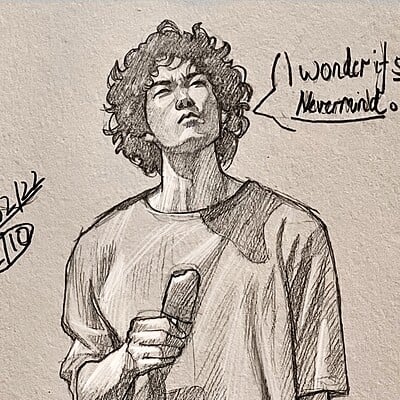 I wonder if
Nevermind.
2/22
/10